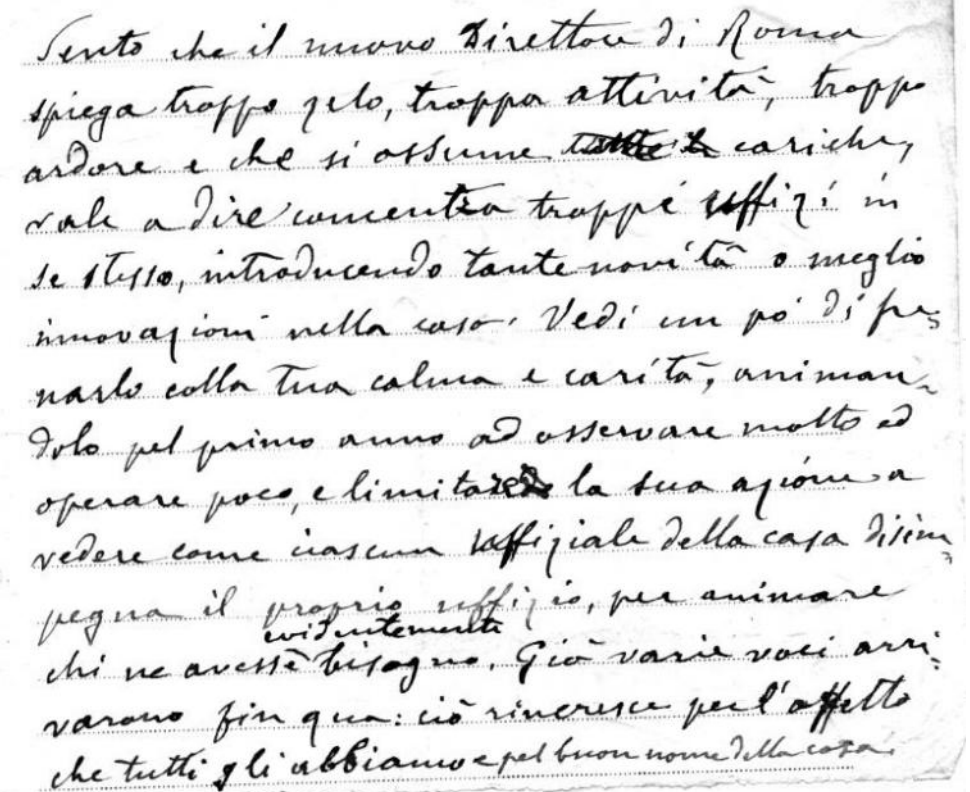 Sento che il nuovo Direttore di Roma
spiega troppo zelo, troppa attività, troppo
ardore e che si assume cariche,
vale a dire concentra troppi uffizi in
se stesso, introducendo tante novità o meglio
innovazioni nella casa. Vedi un pò di fre=
narlo colla tua calma e carità, animan=
dolo pel primo anno ad osservare molto ed
operare poco, e limitare la sua azione a
vedere come ciascun uffiziale della casa disim=
pegna il proprio uffizio, per animare
evidentemente
chi ne avesse bisogno. Già varie voci arri=
varono fin qua: ciò rincresce per l'affetto
che tutti gli abbiamo e pel buon nome della casa.